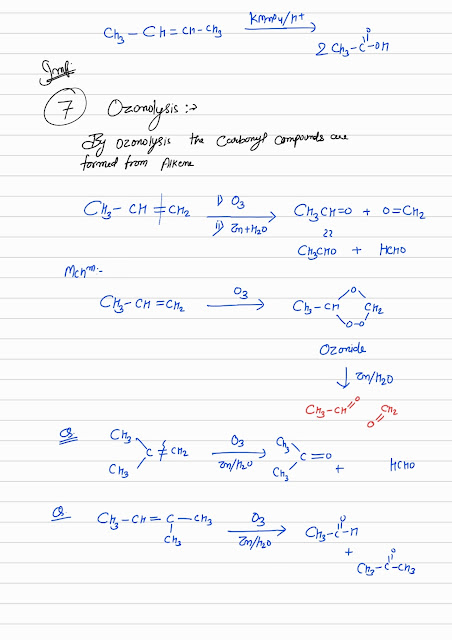 CH3 - CH = CH - CH3 KMnO4/H+ → 2 CH3 - C(=O) - OH
Imp:
7 Ozonolysis :->
By Ozonolysis the Carbonyl Compounds are
formed from Alkene
CH3 - CH = CH2 i) O3 ii) Zn+H2O → CH3CH=O + O=CH2
CH3CHO + HCHO
Mchm:-
CH3 - CH = CH2 O3 → CH3 - CH O CH2 O-O
Ozonide
↓ Zn/H2O
CH3 - CH = O O = CH2
Q CH3 CH3 C = CH2 O3 Zn/H2O → CH3 CH3 C = O + HCHO
Q CH3 - CH = C - CH3 CH3 O3 Zn/H2O → CH3 - C(=O) - H
+
CH3 - C(=O) - CH3